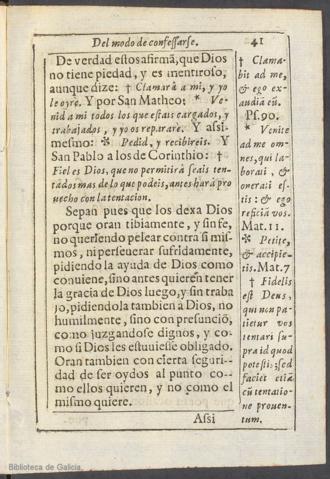 Del modo de confessarse. 41
De verdad estos afirmã, que Dios
no tiene piedad, y es mentiroso,
aunque dize: † Clamarà a mi, y yo
le oyre. Y por San Matheo: * Ve-
nid a mi todos los que estais cargados, y
trabajados, y yo os reparare. Y assi-
mesmo: * Pedid, y recibireis. Y
San Pablo a los de Corinthio: †
Fiel es Dios, que no permitirà seais ten-
tados mas de lo que podeis, antes harà pro
uecho con la tentacion.
Sepan pues que los dexa Dios
porque oran tibiamente, y sin fe,
no queriendo pelear contra si mis-
mos, ni perseuerar sufridamente,
pidiendo la ayuda de Dios como
conuiene, sino antes quieren tener
la gracia de Dios luego, y sin traba
jo, pidiendola tambien à Dios, no
humilmente, sino con presunciõ,
como juzgandose dignos, y co-
mo si Dios les estuuiesse obligado.
Oran tambien con cierta seguri-
dad de ser oydos al punto co-
mo ellos quieren, y no como el
mismo quiere.
Assi
† Clama-
bit ad me,
& ego ex-
audia eũ.
Ps. 90.
* Venite
ad me om-
nes, qui la-
borati, &
onerati es-
tis: & ego
reficiã vos.
Mat. 11.
* Petite,
& accipie-
tis. Mat. 7
† Fidelis
est Deus,
qui non pa-
tietur vos
tentari su-
pra id quod
potestis: sed
faciet etiã
cũ tentatio-
ne prouen-
tum.
Biblioteca de Galicia